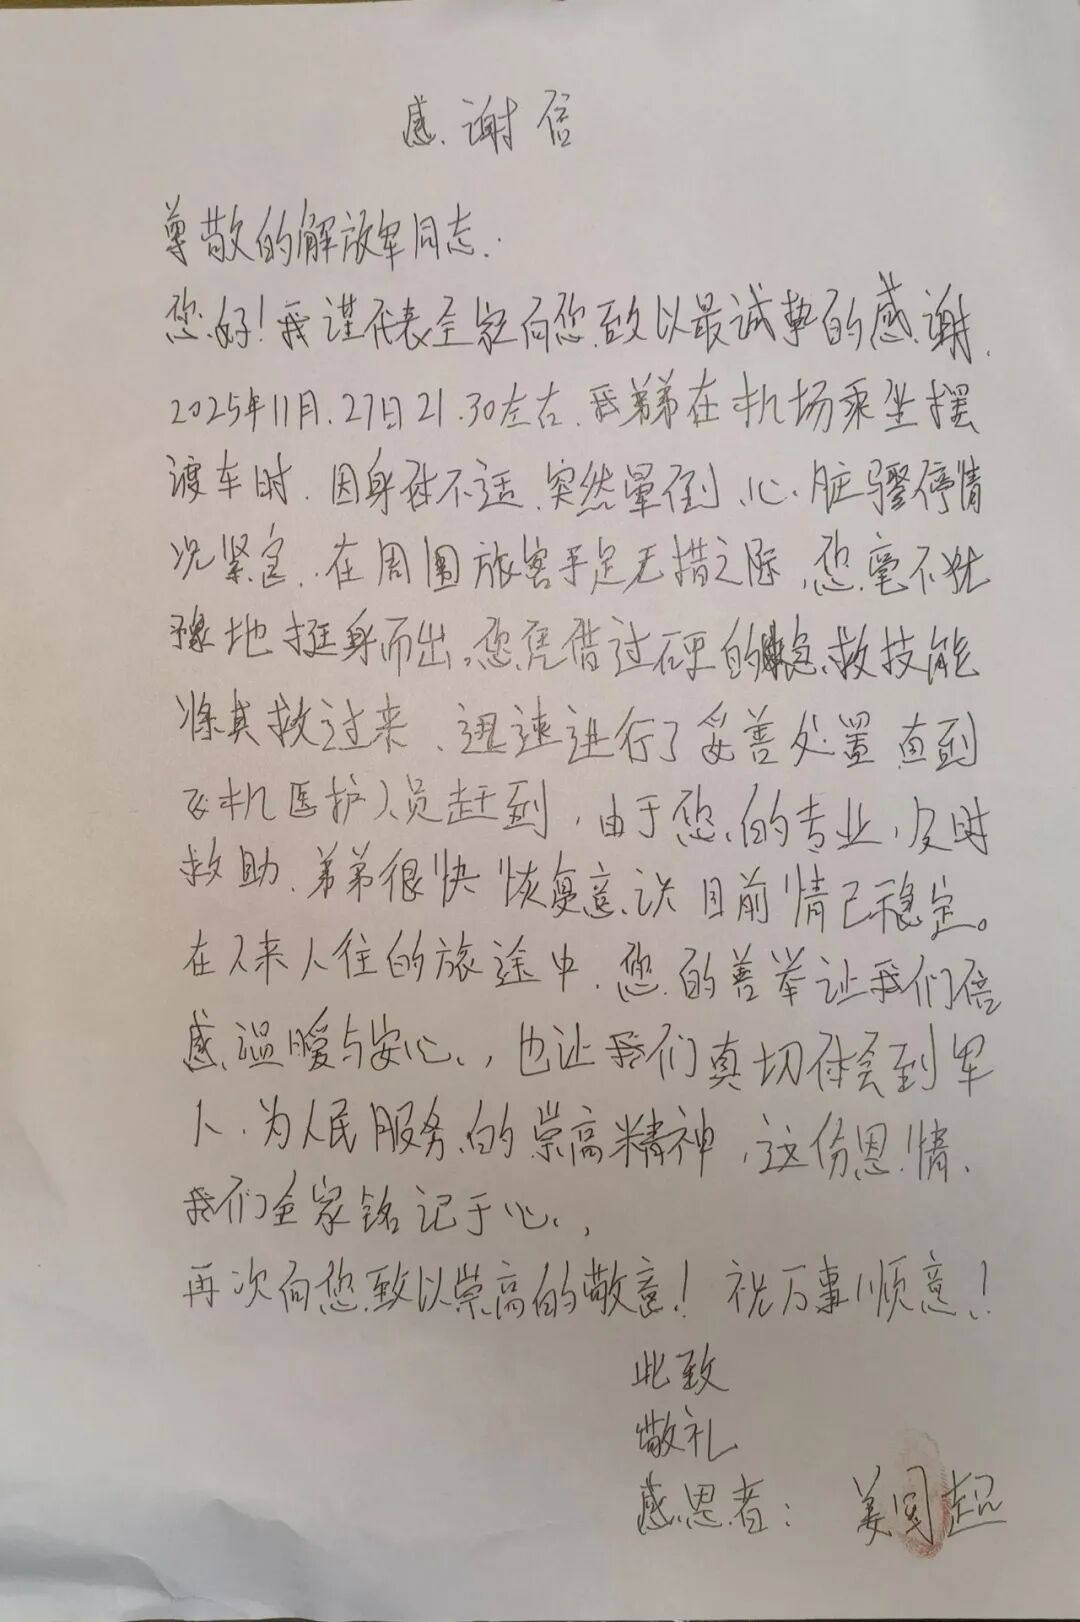 感谢信
尊敬的解放军同志.
您好!我谨代表全家向您致以最诚挚的感谢.
2025年11月.27日21.30左右.我弟弟在机场乘坐摆
渡车时.因身体不适.突然晕倒、心脏骤停情
况紧急..在周围旅客手足无措之际,您毫不犹
豫地挺身而出。您凭借过硬的急救技能
将其救过来、迅速进行了妥善处置直到
飞机医护人员赶到,由于您的专业,及时
救助.弟弟很快恢复意识目前情已稳定。
在人来人往的旅途中.您的善举让我们倍
感温暖与安心.,也让我们真切体会到军
人.为人民服务的崇高精神,这份恩情、
我们全家铭记于心.,
再次向您致以崇高的敬意!祝万事顺意!
此致
敬礼
感恩者:姜国超